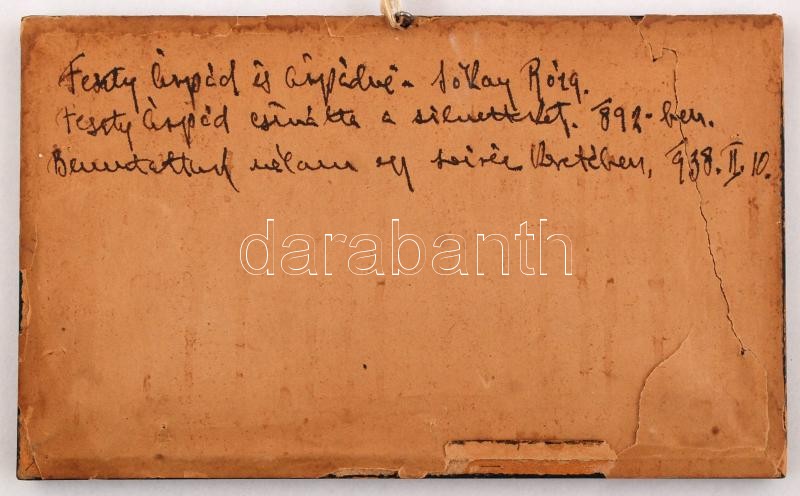 Feszty Árpád és Árpádné - Jókay Róza.
Feszty Árpád csinálta a silhuetteket. 892-ben.
Bemutattuk nálam egy soirée keretében, 938. II. 10.
darabanth